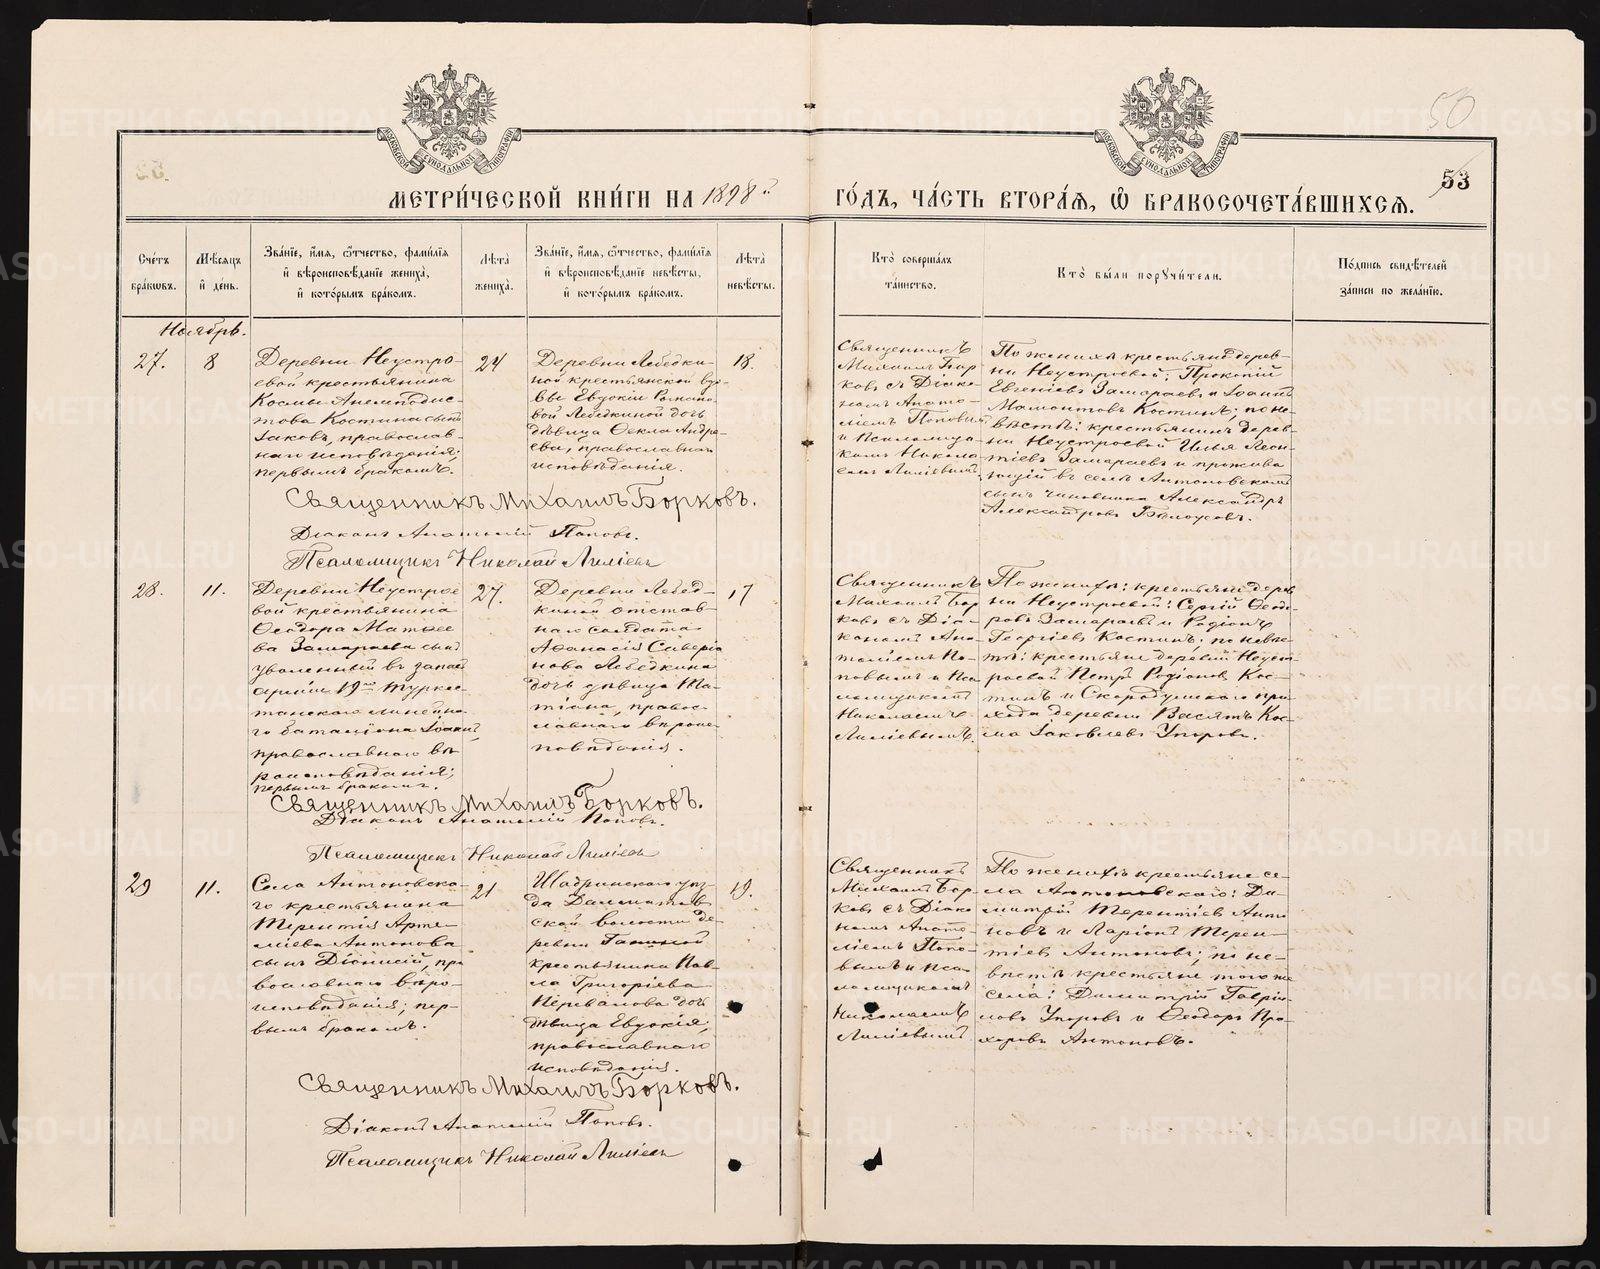 50
53
МЕТРИ́ЧЕСКОЙ КНИ́ГИ НА 1898й
ГО́ДЪ, ЧА́СТЬ ВТОРА́Ѧ, Ѡ҆ БРАКОСОЧЕТА́ВШИХСѦ.
Сче́тъ бра́кѡвъ.
Мѣ́сѧцъ и҆ де́нь.
Зва́нїе, и҆́мѧ, ѻ҆́тчество, фами́лїѧ
и҆ вѣроисповѣ́данїе жениха̀,
и҆ кото́рымъ бра́комъ.
Лѣта̀ жениха̀.
Зва́нїе, и҆́мѧ, ѻ҆́тчество, фами́лїѧ
и҆ вѣроисповѣ́данїе невѣ́сты,
и҆ кото́рымъ бра́комъ.
Лѣта̀ невѣ́сты.
Кто̀ соверша́лъ та́инство.
Кто̀ бы́ли порꙋчи́тели.
По́дпись свидѣ́телей за́писи по жела́нїю.
Ноябрь.
27.
8
Деревни Неустро-
евой крестьянина
Космы Анемподис-
това Костина сынъ
Іаковъ, православ-
наго исповѣданія;
первымъ бракомъ.
24
Деревни Лебедки-
ной крестьянской вдо-
вы Евдокіи
вой Лебедкиной дочь
дѣвица Ѳекла Андре-
ева, православнаго
исповѣданія.
18.
Священникъ
Михаилъ Бор
ковъ съ Діако
номъ Анато-
ліемъ Поповымъ
и Псаломщи-
комъ Никола-
емъ Лиліевымъ.
По женихѣ крестьяне дерев-
ни Неустроевой: Прокопій
Евгеніевъ Замараевъ и Іоаннъ
Мамонтовъ Костинъ; по не-
вѣстѣ: крестьянинъ дерев-
ни Неустроевой Илья Леон-
тіевъ Замараевъ и прожива
ющій въ селѣ Антоновскомъ
сынъ чиновника Александръ
Александровъ Бѣлоусовъ.
Священникъ Михаилъ Борковъ.
Діаконъ Анатолій Поповъ.
Псаломщикъ Николай Лиліевъ
28.
11.
Деревни Неустрое
вой крестьянина
Ѳеодора Матѳее
ва Замараева сынъ
уволенный въ запасъ
арміи 19го Туркес-
танскаго линейна-
го баталіона Іоакимъ,
православнаго вѣ-
роисповѣданія;
первымъ бракомъ.
27.
Деревни Лебед-
киной отстав-
наго солдата
Аѳанасія Сиверіа
нова Лебедкина
дочь дѣвица Та-
тіана, правос-
лавнаго вѣроис-
повѣданія.
17
Священникъ
Михаилъ Бор
ковъ съ Діа-
кономъ Ана-
толіемъ По-
повымъ и Пса
ломщикомъ
Николаемъ
Лиліевымъ.
По женихѣ: крестьяне дерев
ни Неустроевой: Сергій Ѳеодо-
ровъ Замараевъ и Родіонъ
Георгіевъ Костинъ; по невѣс-
тѣ: крестьяне деревни Неуст-
роевой Петръ Родіоновъ Кос-
тинъ и Скородумскаго при-
хода деревни Васятъ Кос-
ма Іаковлевъ Упоровъ.
Священникъ Михаилъ Борковъ.
Діаконъ Анатолій Поповъ.
Псаломщикъ Николай Лиліевъ
29
11.
Села Антоновска-
го крестьянина
Терентія Арте-
міева Антонова
сынъ Діонисій, пра
вославнаго вѣро-
исповѣданія; пер-
вымъ бракомъ.
21
Шадринскаго уѣз-
да Далматов
ской волости де-
ревни
крестьянина Пав-
ла Григоріева
Перевалова дочь
дѣвица Евдокія,
православнаго
исповѣданія.
19.
Священникъ
Михаилъ Бор-
ковъ съ Діако
номъ Анато-
ліемъ Попо-
вымъ и пса-
ломщикомъ
Николаемъ
Лиліевымъ
По женихѣ крестьяне се-
ла Антоновскаго: Ди-
митрій Терентіевъ Анто
новъ и Ларіонъ Терен-
тіевъ Антоновъ; по не-
вѣстѣ крестьяне того же
села: Димитрій Гаврі-
ловъ Упоровъ и Ѳеодоръ Про-
хоровъ Антоновъ.
Священникъ Михаилъ Борковъ.
Діаконъ Анатолій Поповъ.
Псаломщикъ Николай Лиліевъ